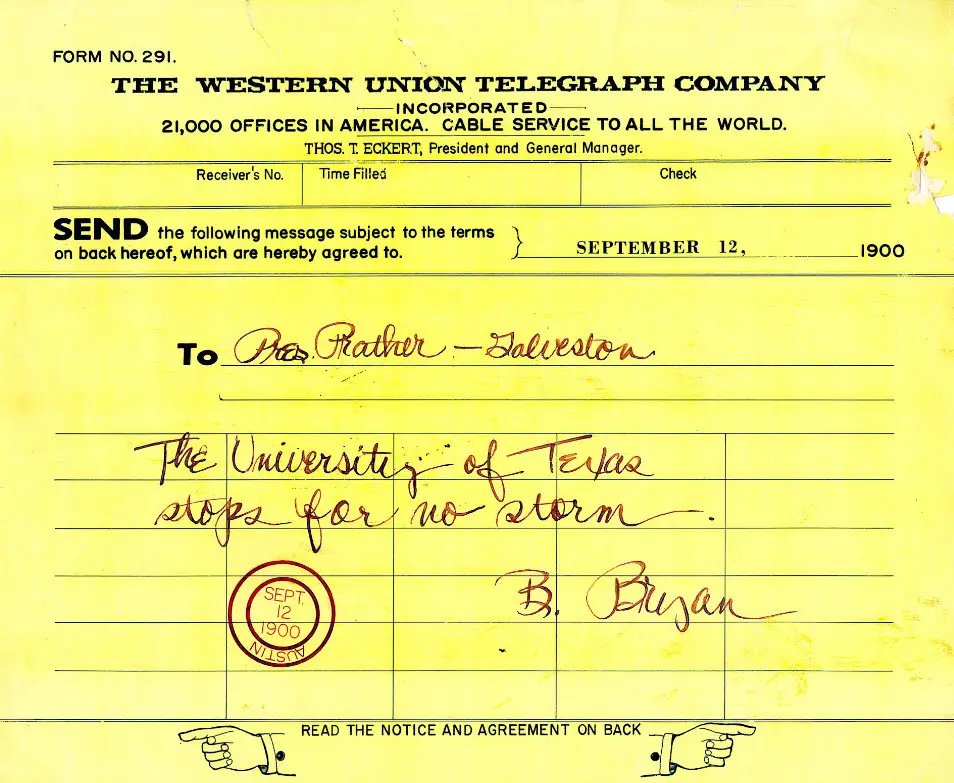 FORM NO. 291.
THE WESTERN UNION TELEGRAPH COMPANY
INCORPORATED
21,000 OFFICES IN AMERICA. CABLE SERVICE TO ALL THE WORLD.
THOS. T. ECKERT, President and General Manager.
Receiver's No. Time Filed Check
SEND the following message subject to the terms
on back hereof, which are hereby agreed to.
SEPTEMBER 12, 1900
To Pres. Prather — Galveston.
The University of Texas
stops for no storm.
B. Bryan
SEPT.
12
1900
AUSTIN
READ THE NOTICE AND AGREEMENT ON BACK